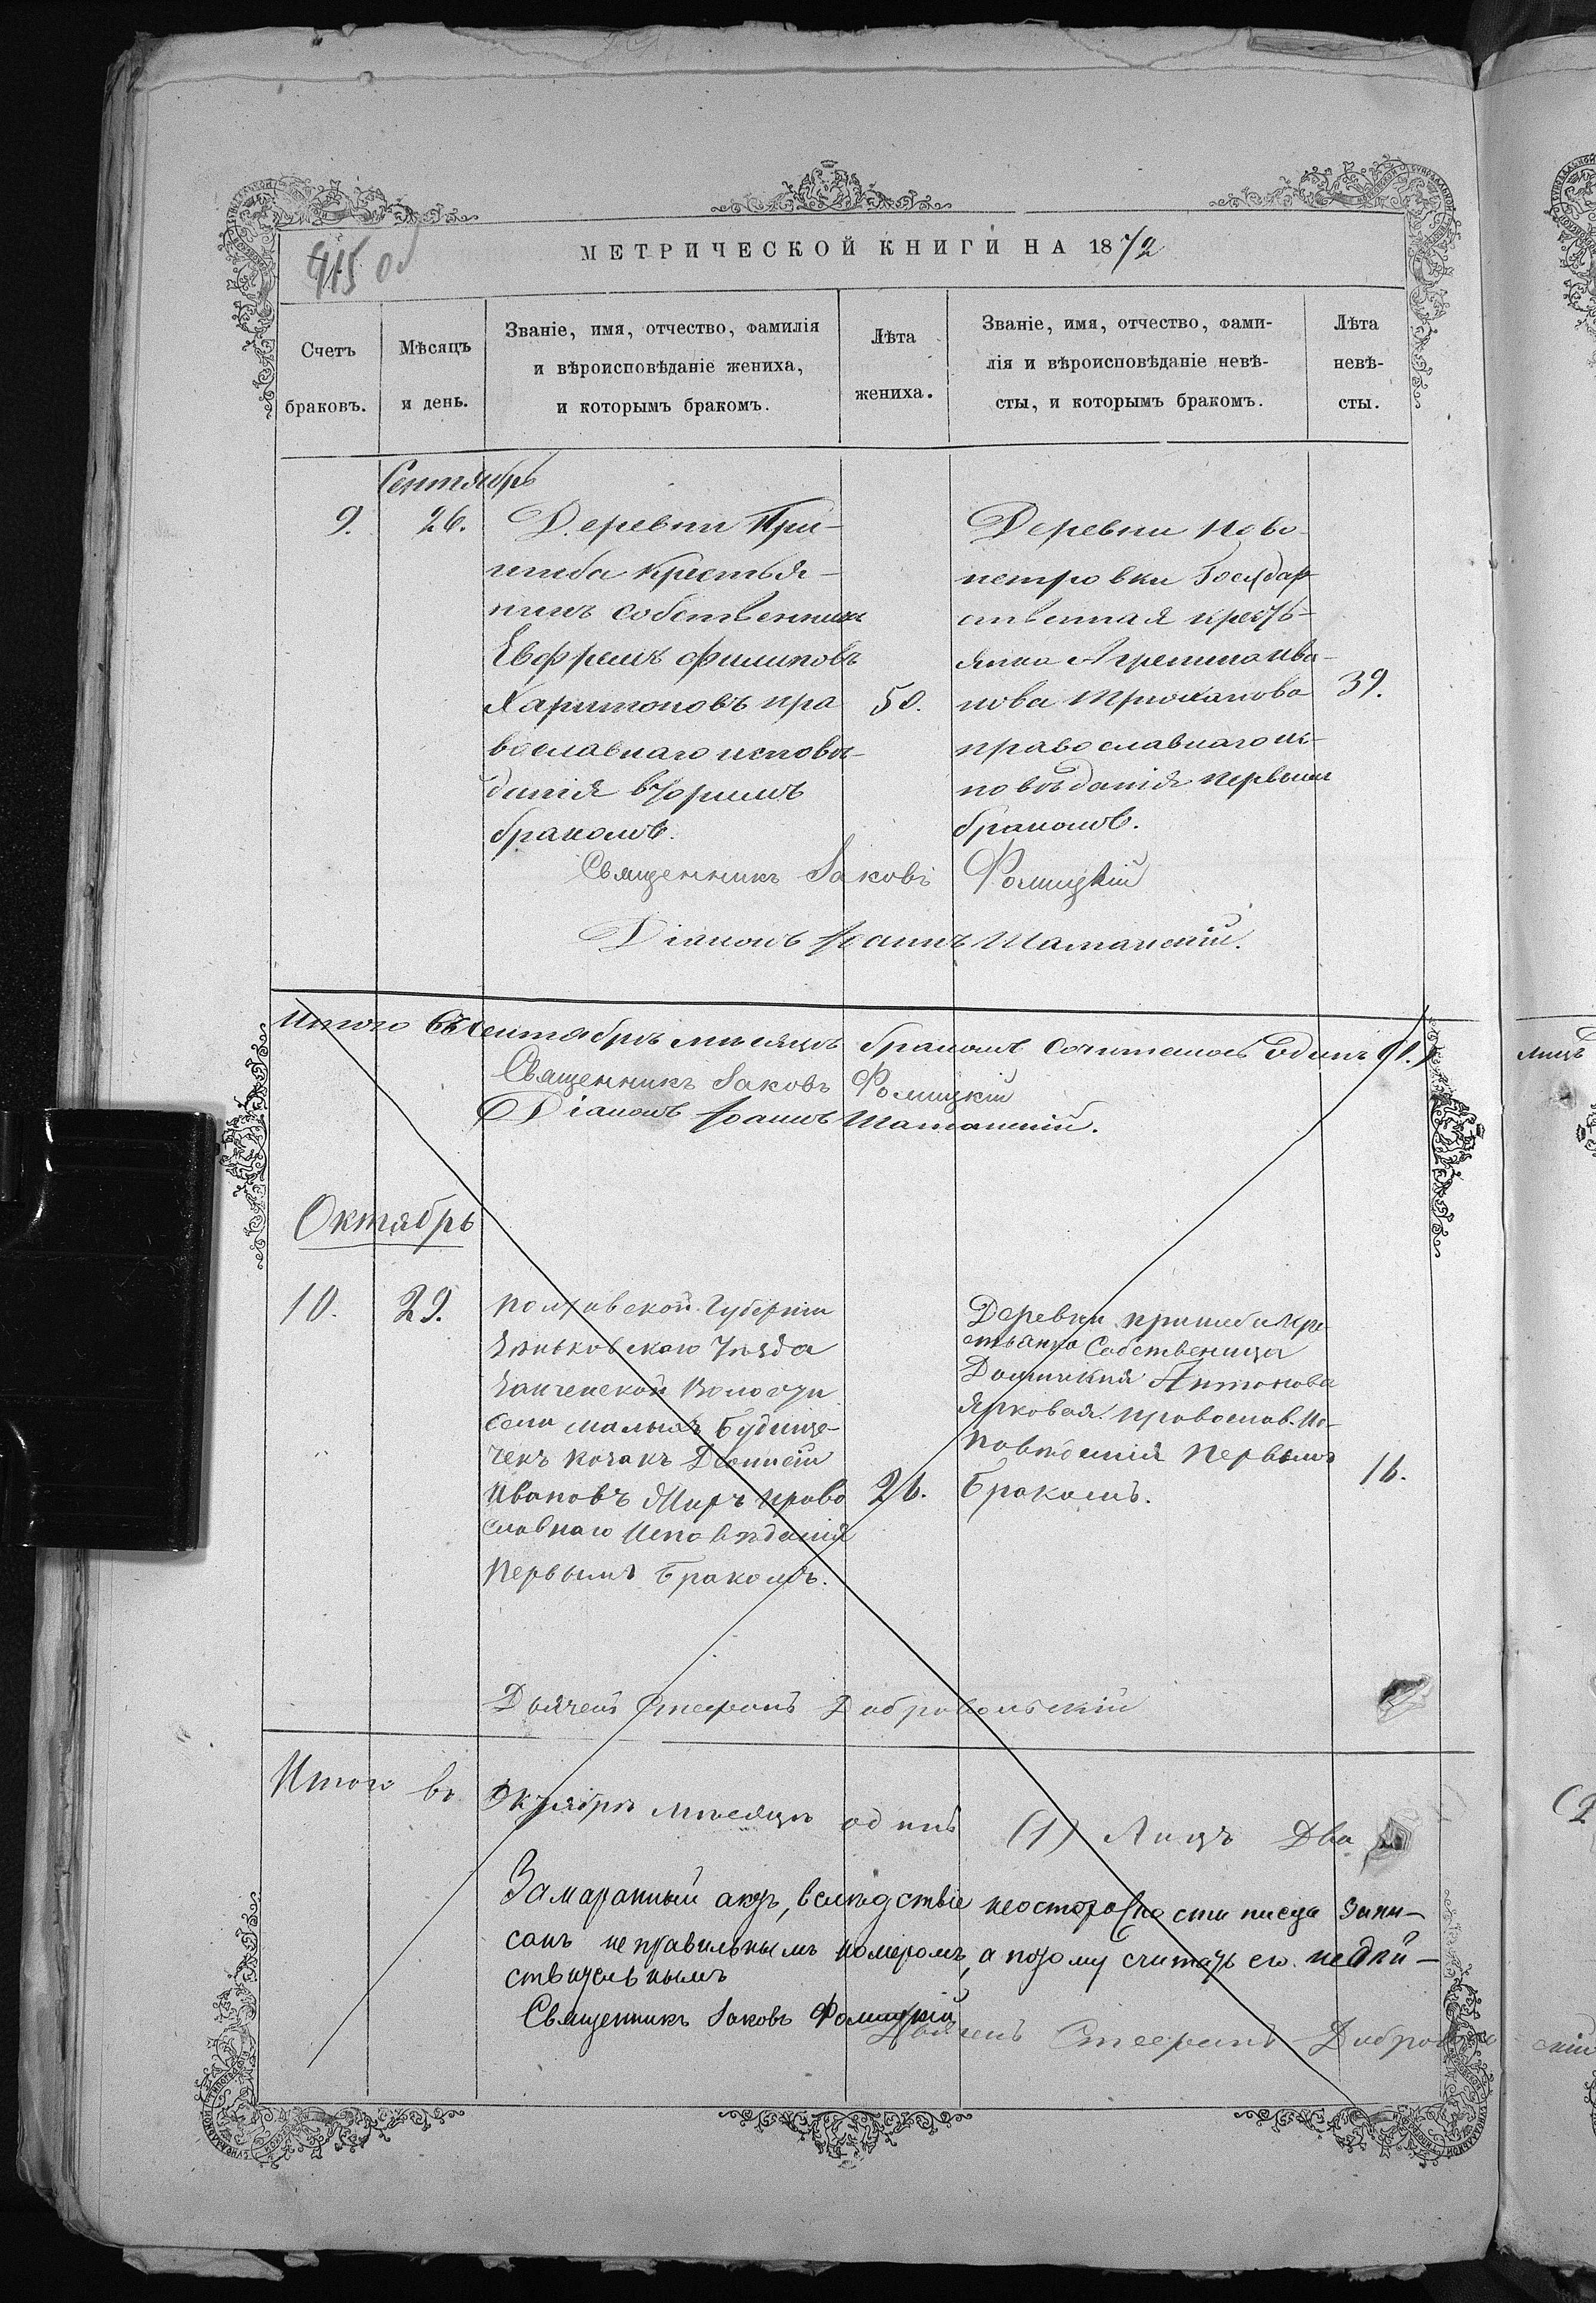 415 об
МЕТРИЧЕСКОЙ КНИГИ НА 1872
Счетъ
браковъ.
Мѣсяцъ
и день.
Званіе, имя, отчество, фамилія
и вѣроисповѣданіе жениха,
и которымъ бракомъ.
Лѣта
жениха.
Званіе, имя, отчество, фами-
лія и вѣроисповѣданіе невѣ-
сты, и которымъ бракомъ.
Лѣта
невѣ-
сты.
Сентябрь
9.
26.
Деревни При-
шиба Крестья-
нинъ собственникъ
Евфремъ Филиповъ
Харитоновъ пра
вославнаго исповѣ-
данія вторымъ
бракомъ.
50.
Деревни Ново-
петровки Государ
ственная кресть-
янка Ива-
нова Трюханова
православнаго ис-
повѣданія первымъ
бракомъ.
39.
Священникъ Іаковъ Фомицкій
Діаконъ Іоаннъ Шаманскій.
Итого въ Сентябрѣ мѣсяцѣ бракомъ сочиталось Одинъ (1.)
Священникъ Іаковъ Фомицкій
Діаконъ Іоаннъ Шаманскій.
Октябрь
10.
29.
Полтавской Губерніи
Зѣньковскаго Уѣзда
Волости
Села малыхъ Будище-
чекъ Козакъ
Ивановъ Жиръ Право
славнаго Исповѣданія
Первымъ Бракомъ.
26.
Деревни пришиба Кре-
стьянка Собственица
Домникия Антонова
Ярковая православ. Ис-
повѣданія Первымъ
Бракомъ.
16.
Дьячекъ Стефанъ Добровольскій
Итого въ Октябрѣ мѣсяцѣ одинъ (1) Лицъ Два
Замаранный актъ, вслѣдствіе неосторожности писца запи-
санъ неправильнымъ номеромъ, а потому считать его недѣй-
ствительнымъ
Священникъ Іаковъ Фомицкій
Дьячекъ Стефанъ Добровольскій
лицъ